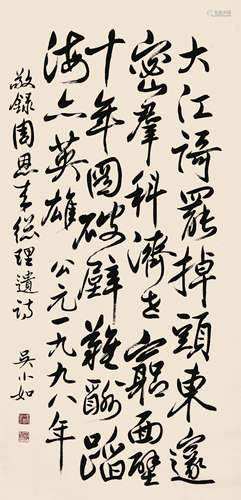 大江謌罷掉頭東邃
密羣科濟世窮面壁
十年圖破壁難酬蹈
海亦英雄 公元一九九八年
敬録周恩来總理遺詩
吴小如